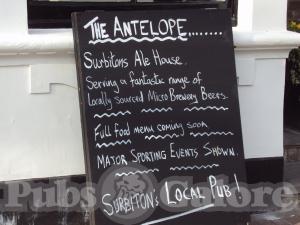 The Antelope.......
Surbitons Ale House.
Serving a fantastic range of
Locally sourced Micro Brewery Beers.
Full food menu coming soon
Major Sporting Events Shown.
Surbiton's Local Pub!
Pubs Galore